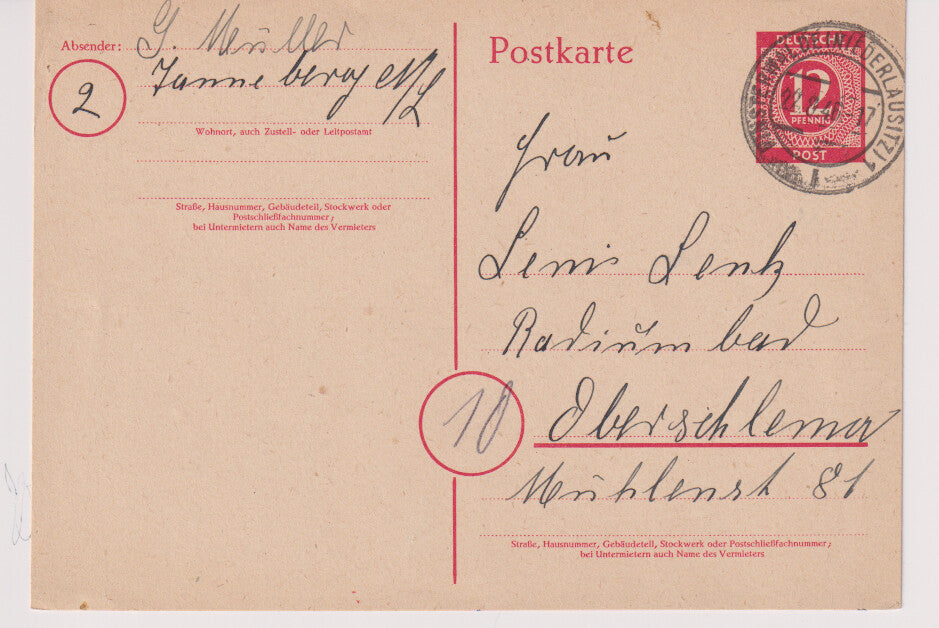 Absender:
G. Müller
2
Tanneberg N/L
Wohnort, auch Zustell- oder Leitpostamt
Straße, Hausnummer, Gebäudeteil, Stockwerk oder
Postschließfachnummer;
bei Untermietern auch Name des Vermieters
Postkarte
DEUTSCHE
12
PFENNIG
POST
(NIEDERLAUSITZ) 1
Frau
Leni Lentz
Radiumbad
10
Oberschlema
Mühlenst 81
Straße, Hausnummer, Gebäudeteil, Stockwerk oder Postschließfachnummer;
bei Untermietern auch Name des Vermieters